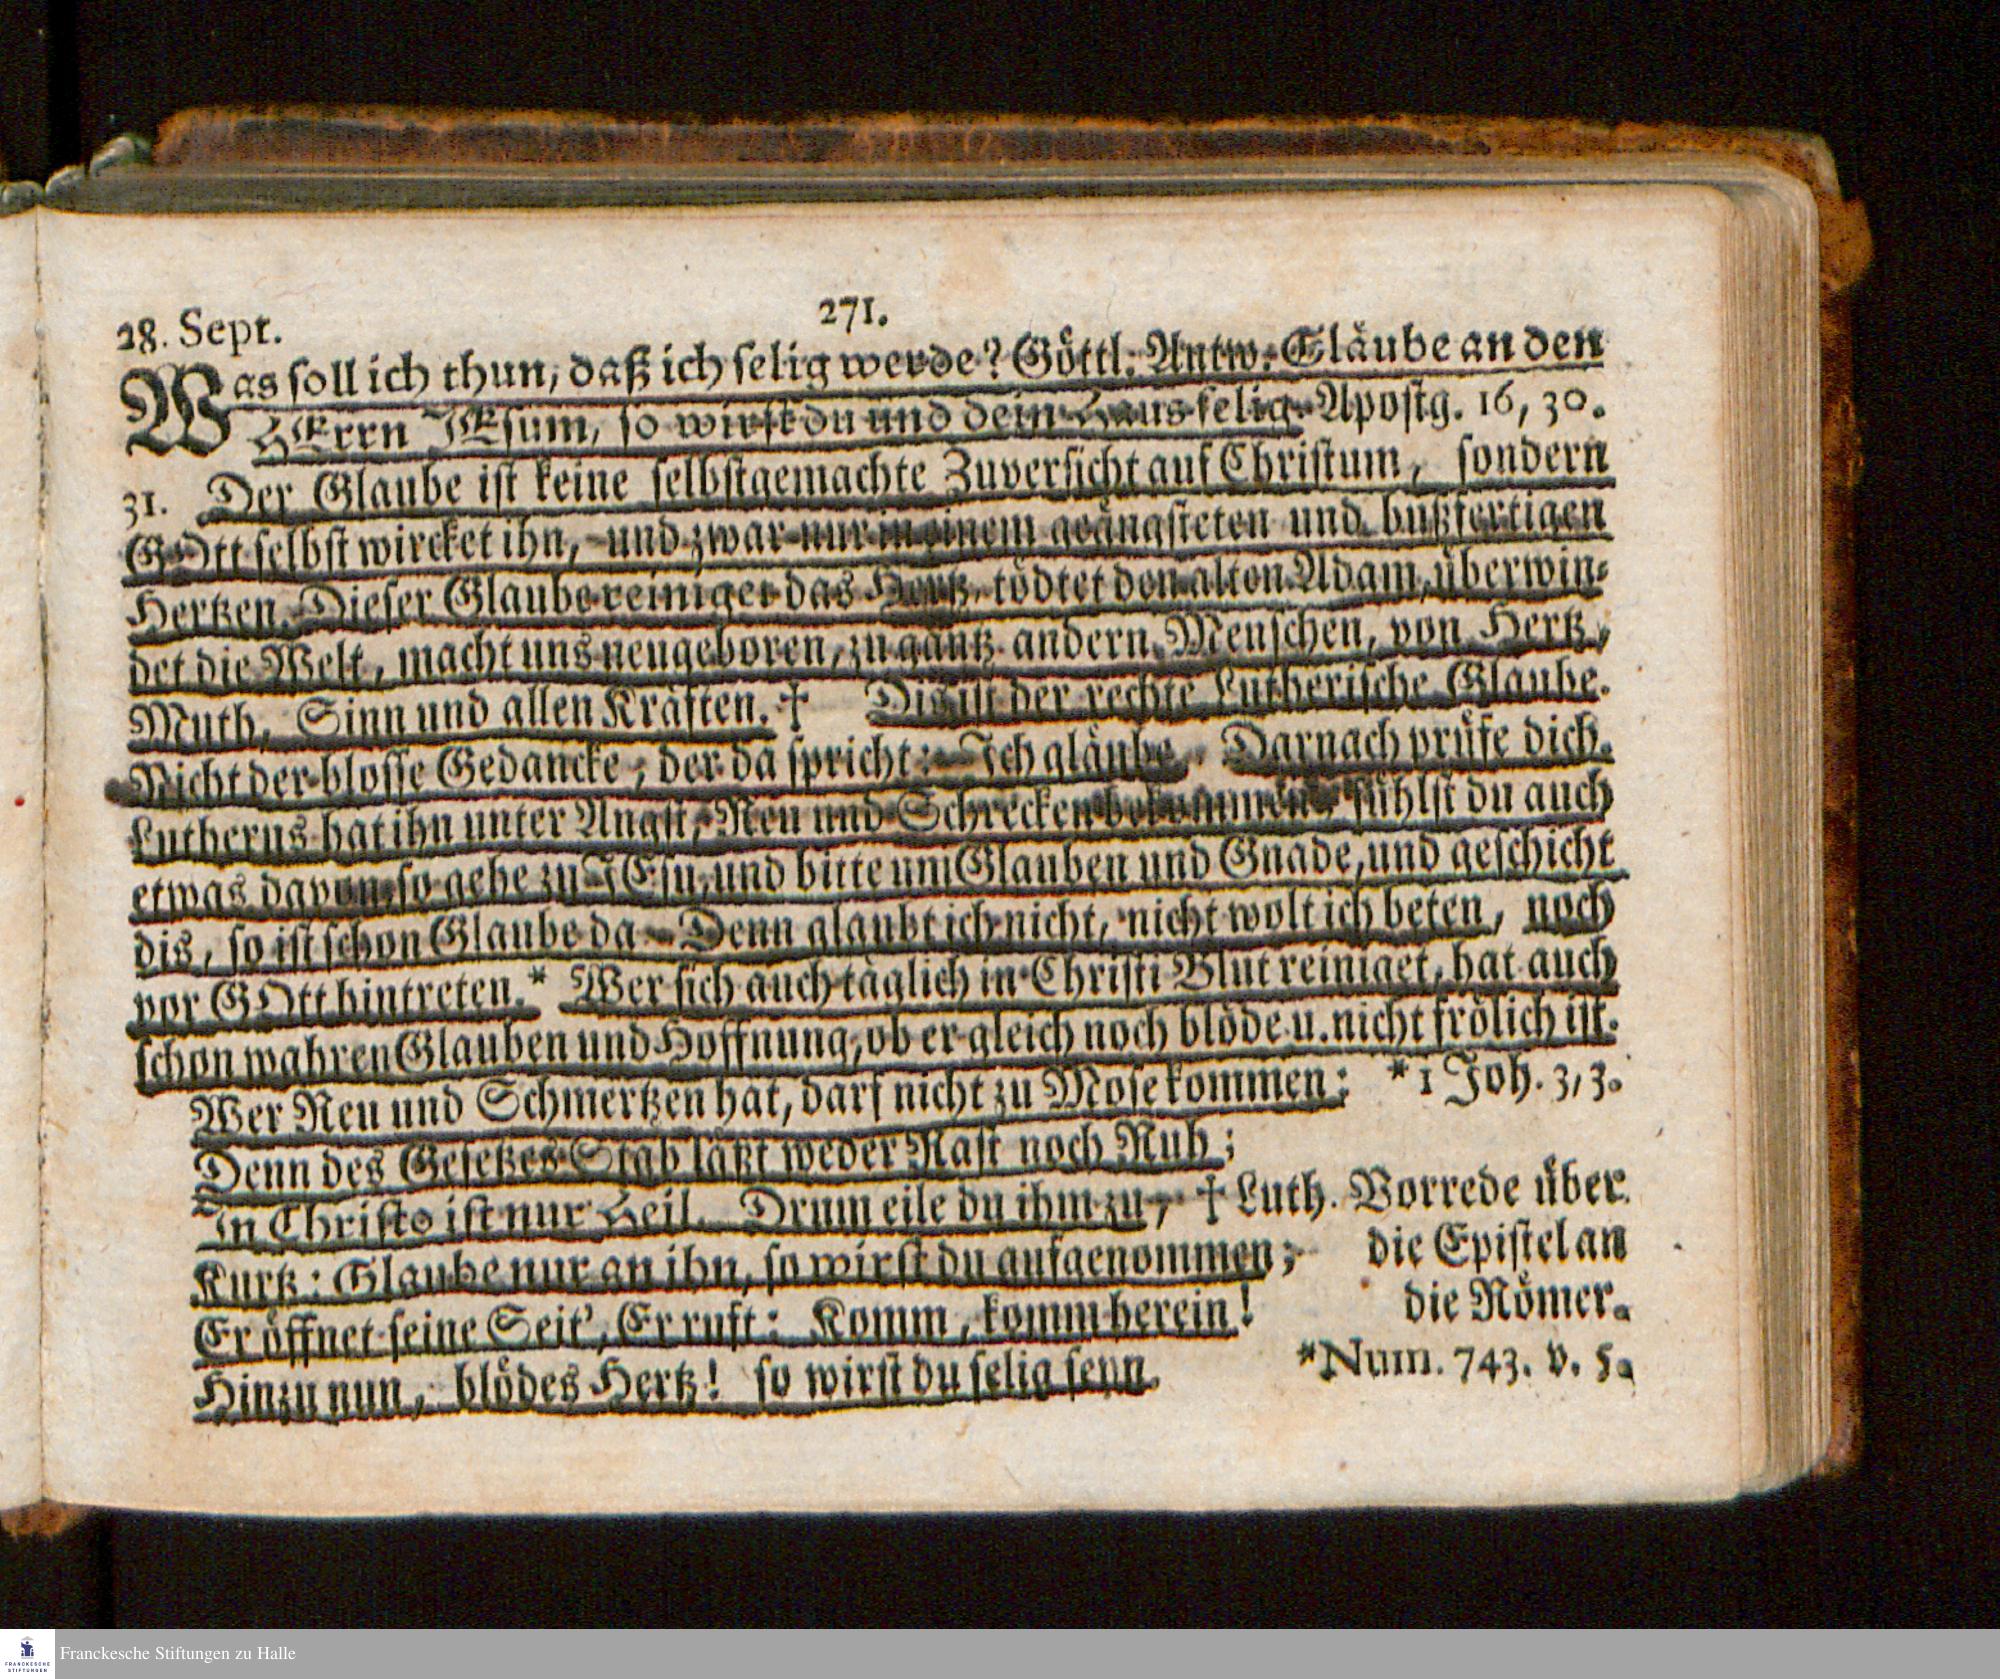 28. Sept.
271.
Was soll ich thun, daß ich selig werde? Göttl. Antw. Gläube an den
HErrn JEsum, so wirst du und dein Haus selig. Apostg. 16, 30.
31. Der Glaube ist keine selbstgemachte Zuversicht auf Christum, sondern
GOtt selbst wircket ihn, und zwar nur in einem geängsteten und bußfertigen
Hertzen. Dieser Glaube reiniget das Hertz, tödtet den alten Adam, überwin-
det die Welt, macht uns neugeboren, zu gantz andern Menschen, von Hertz,
Muth, Sinn und allen Kräften. † Dis ist der rechte Lutherische Glaube.
Nicht der blosse Gedancke, der da spricht: Ich gläube. Darnach prüfe dich.
Lutherus hat ihn unter Angst, Reu und Schrecken bekommen, fühlst du auch
etwas davon, so gehe zu JEsu, und bitte um Glauben und Gnade, und geschicht
dis, so ist schon Glaube da. Denn glaubt ich nicht, nicht wolt ich beten, noch
vor GOtt hintreten.* Wer sich auch täglich in Christi Blut reiniget, hat auch
schon wahren Glauben und Hoffnung, ob er gleich noch blöde u. nicht frölich ist.
Wer Reu und Schmertzen hat, darf nicht zu Mose kommen; *1 Joh. 3, 3.
Denn des Gesetzes Stab läßt weder Rast noch Ruh;
In Christo ist nur Heil. Drum eile du ihm zu, † Luth. Vorrede über
Kurtz: Glaube nur an ihn, so wirst du aufgenommen; die Epistel an
Er öffnet seine Seit', Er ruft: Komm, komm herein! die Römer.
Hinzu nun, blödes Hertz! so wirst du selig seyn. *Num. 743. v. 5.
FRANCKESCHE
STIFTUNGEN
Franckesche Stiftungen zu Halle